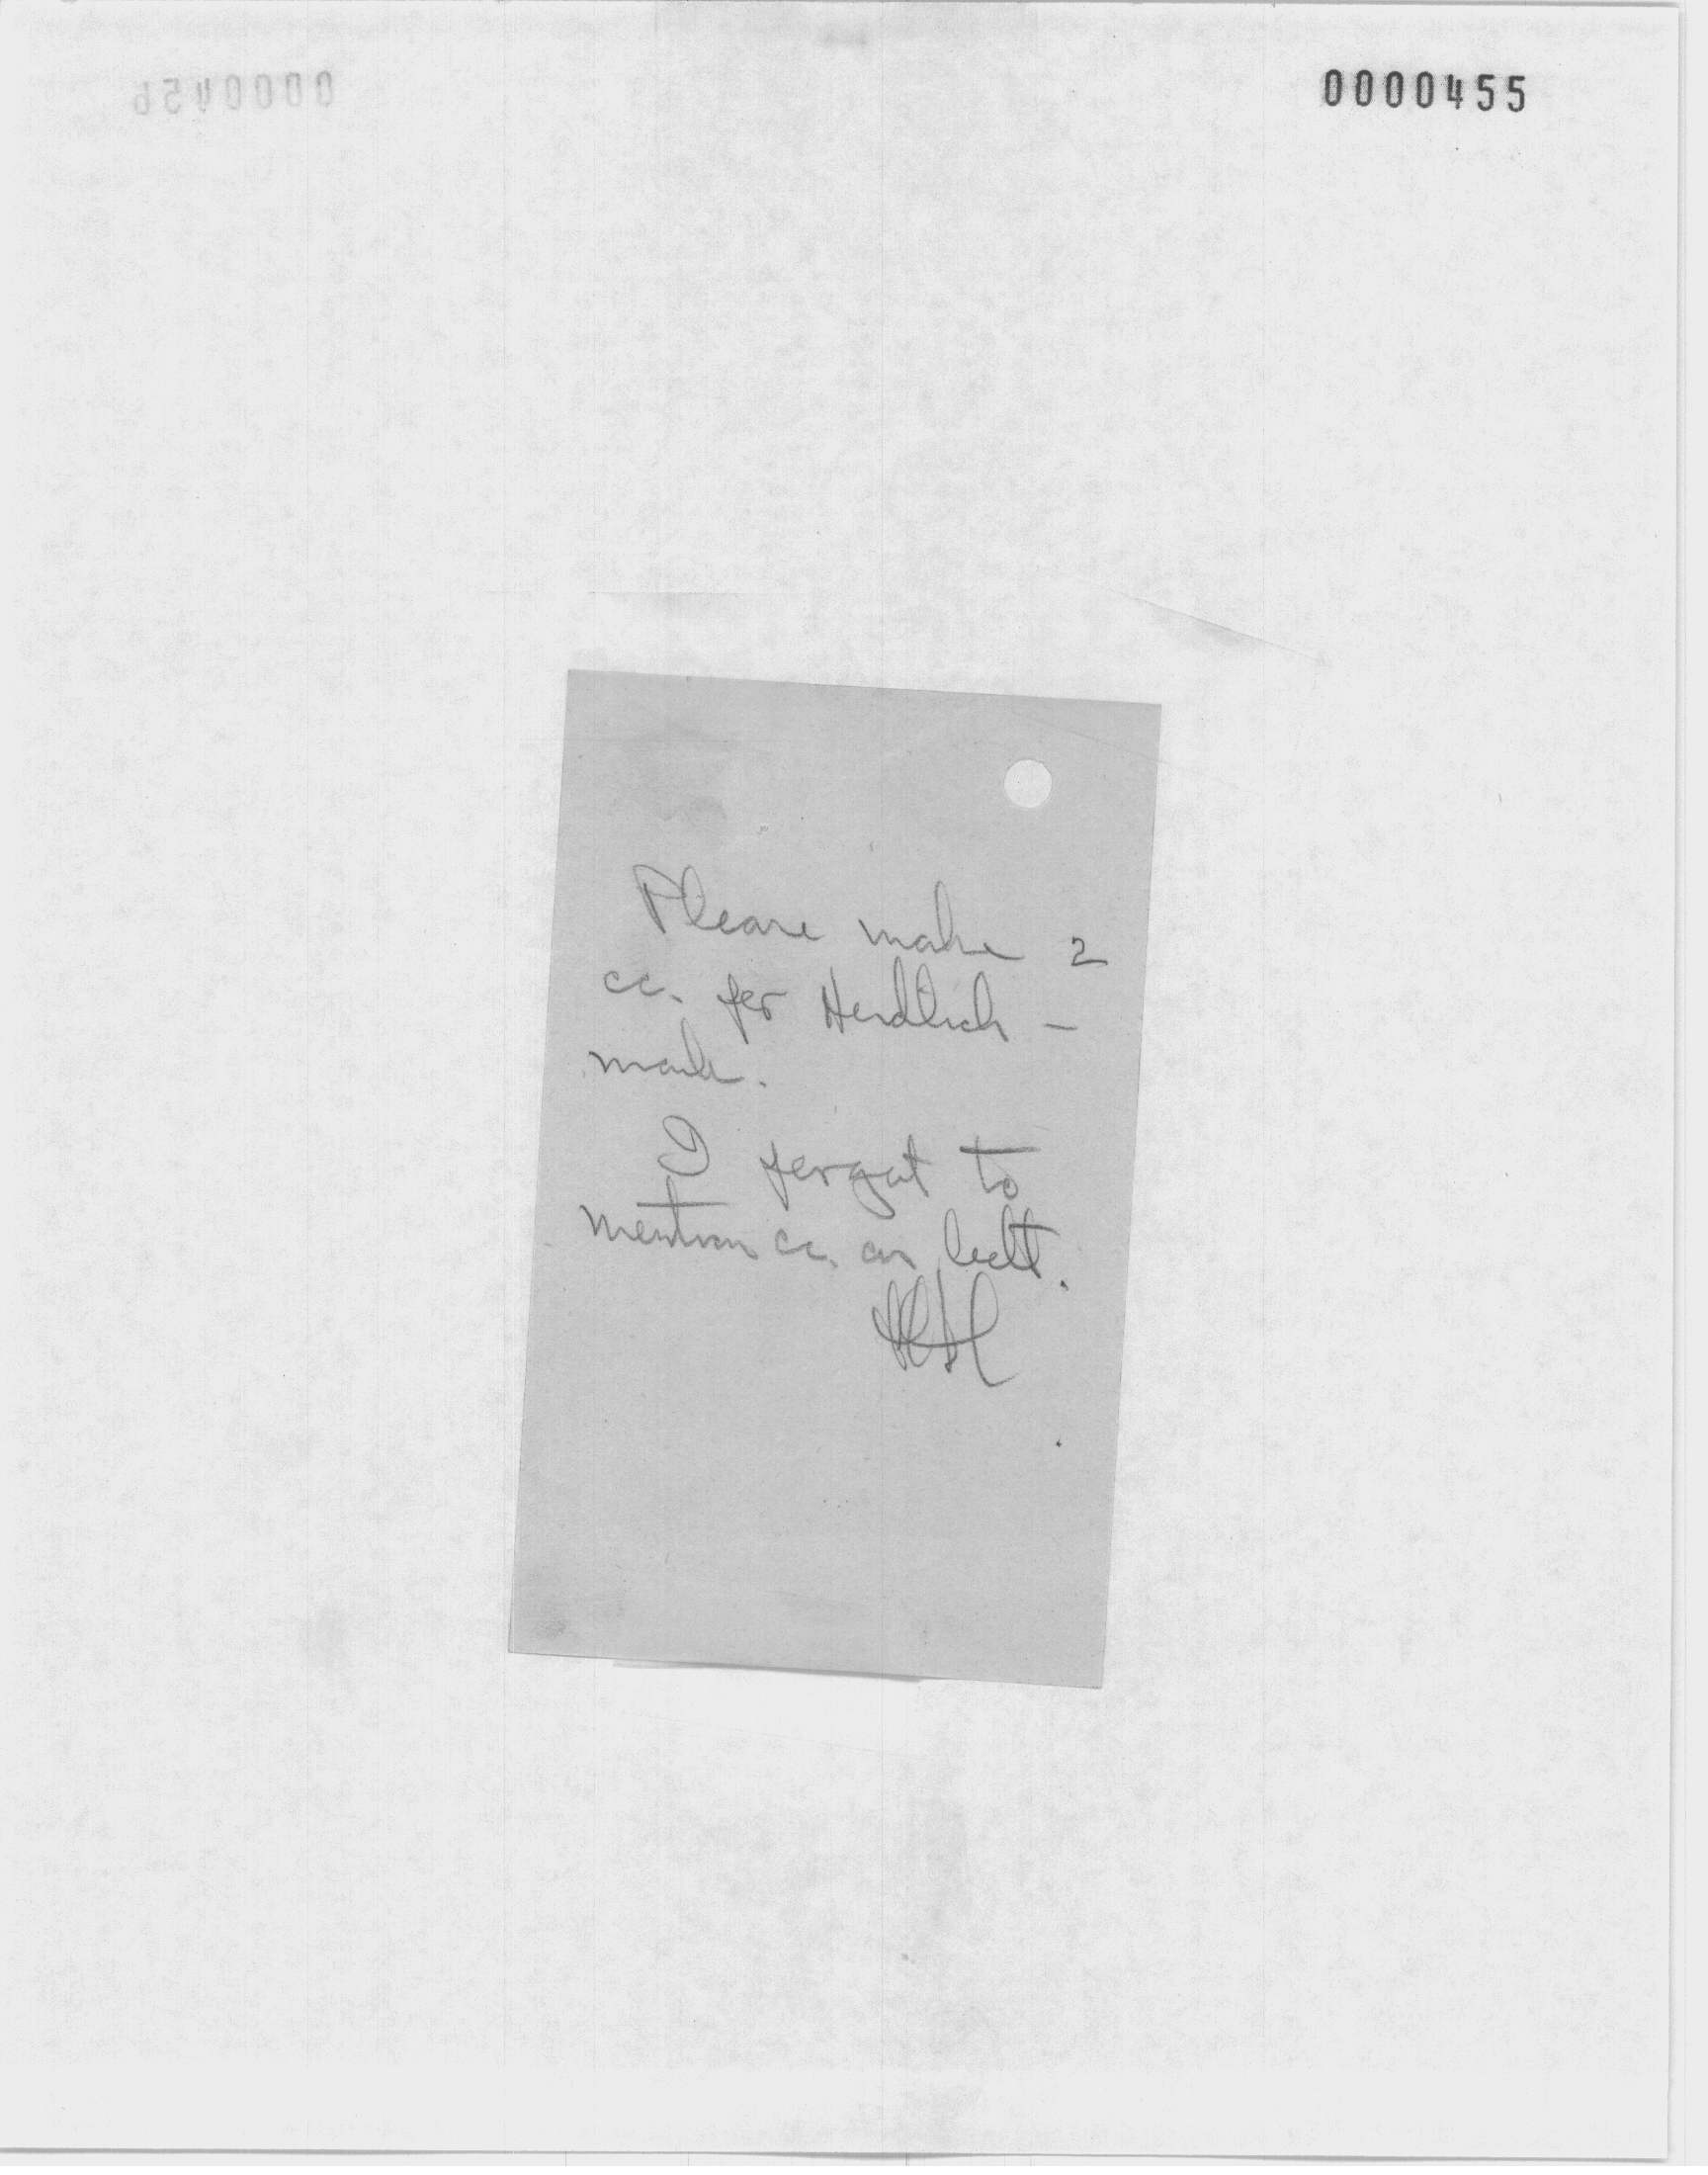 0000455
Please make 2
cc. for Herdlich -
I forgot to
mention cc. on belt.
HH